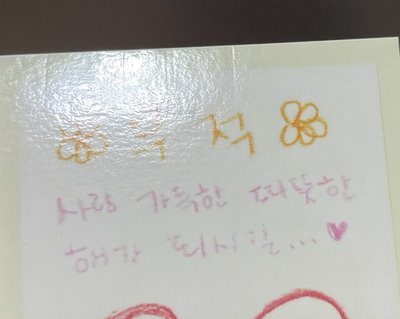 부적
사랑 가득한 따뜻한
해가 되시길...♥